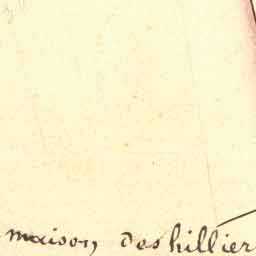 maison, des hillier